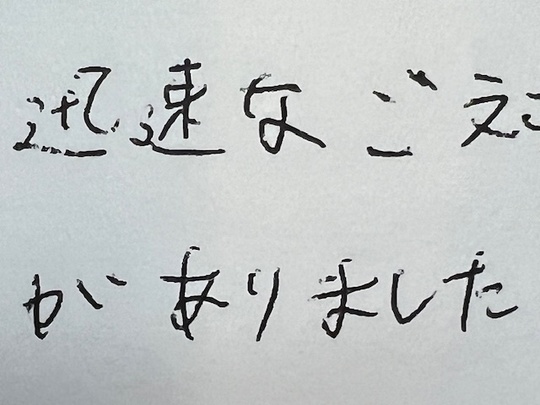 迅速なご
がありました